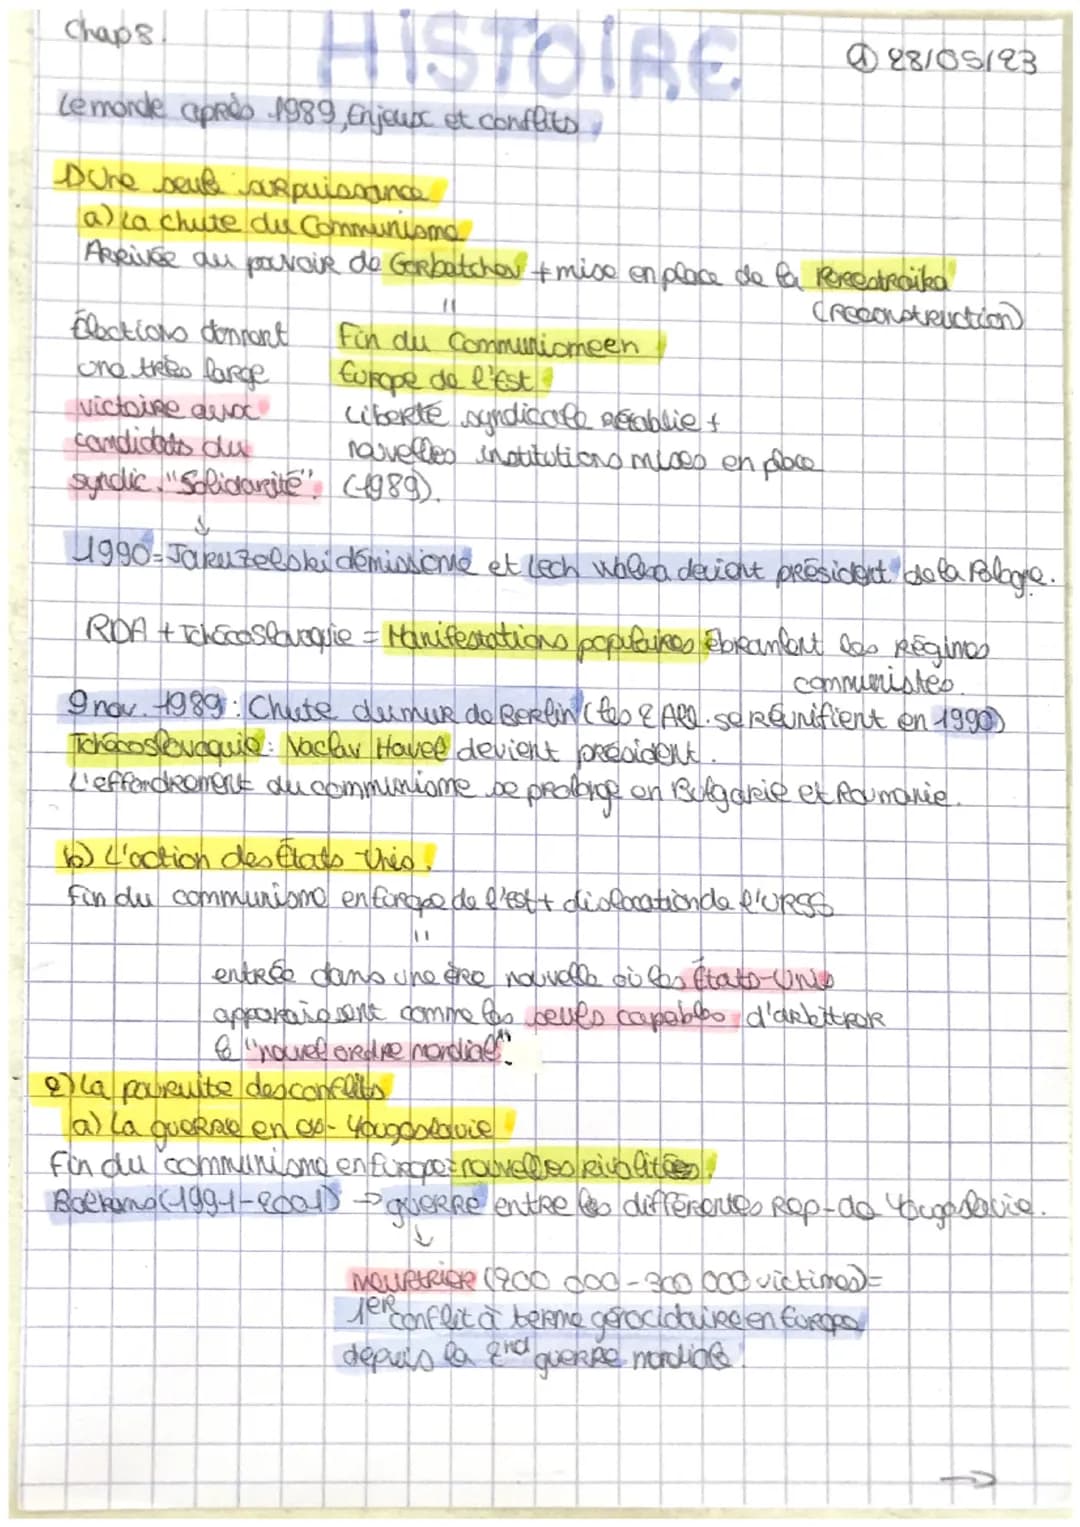 Chap 8.
HiSTOiRE
① 28/05/23
Le monde après 1989, Enjeux et conflits.
1) Une seule surpuissance
a) La chute du Communisme
Arrivée au pouvoir de Gorbatchev + mise en place de la Perestroika
(reconstruction)
"
Élections donnant
une très large
victoire aux
candidats du
syndic. "Solidarité".
Fin du Communisme en
Europe de l'Est.
Liberté syndicale rétablie +
nouvelles institutions mises en place
(1989).
↓
1990 = Jaruzelski démissione et Lech Walesa devient président de la Pologne.
RDA + Tchécoslovaquie = Manifestations populaires ébranlant les régimes
communistes.
9 nov. 1989 : Chute du mur de Berlin (les 2 All. se réunifient en 1990)
Tchécoslovaquie : Vaclav Havel devient président.
L'effondrement du communisme se prolonge en Bulgarie et Roumanie.
b) L'action des États-Unis.
Fin du communisme en Europe de l'est + dislocation de l'URSS
"
entrée dans une ère nouvelle où les États-Unis
apparaissent comme les seuls capables d'arbitrer
le "nouvel ordre mondial".
2) La poursuite des conflits
a) La guerre en ex-Yougoslavie
Fin du communisme en Europe = nouvelles rivalités
Balkans (1991-2001) → guerre entre les différentes Rep. de Yougoslavie.
↓
meurtrier (200 000 - 300 000 victimes) =
1er conflit à terme génocidaire en Europe
depuis la 2nd guerre mondiale.
→